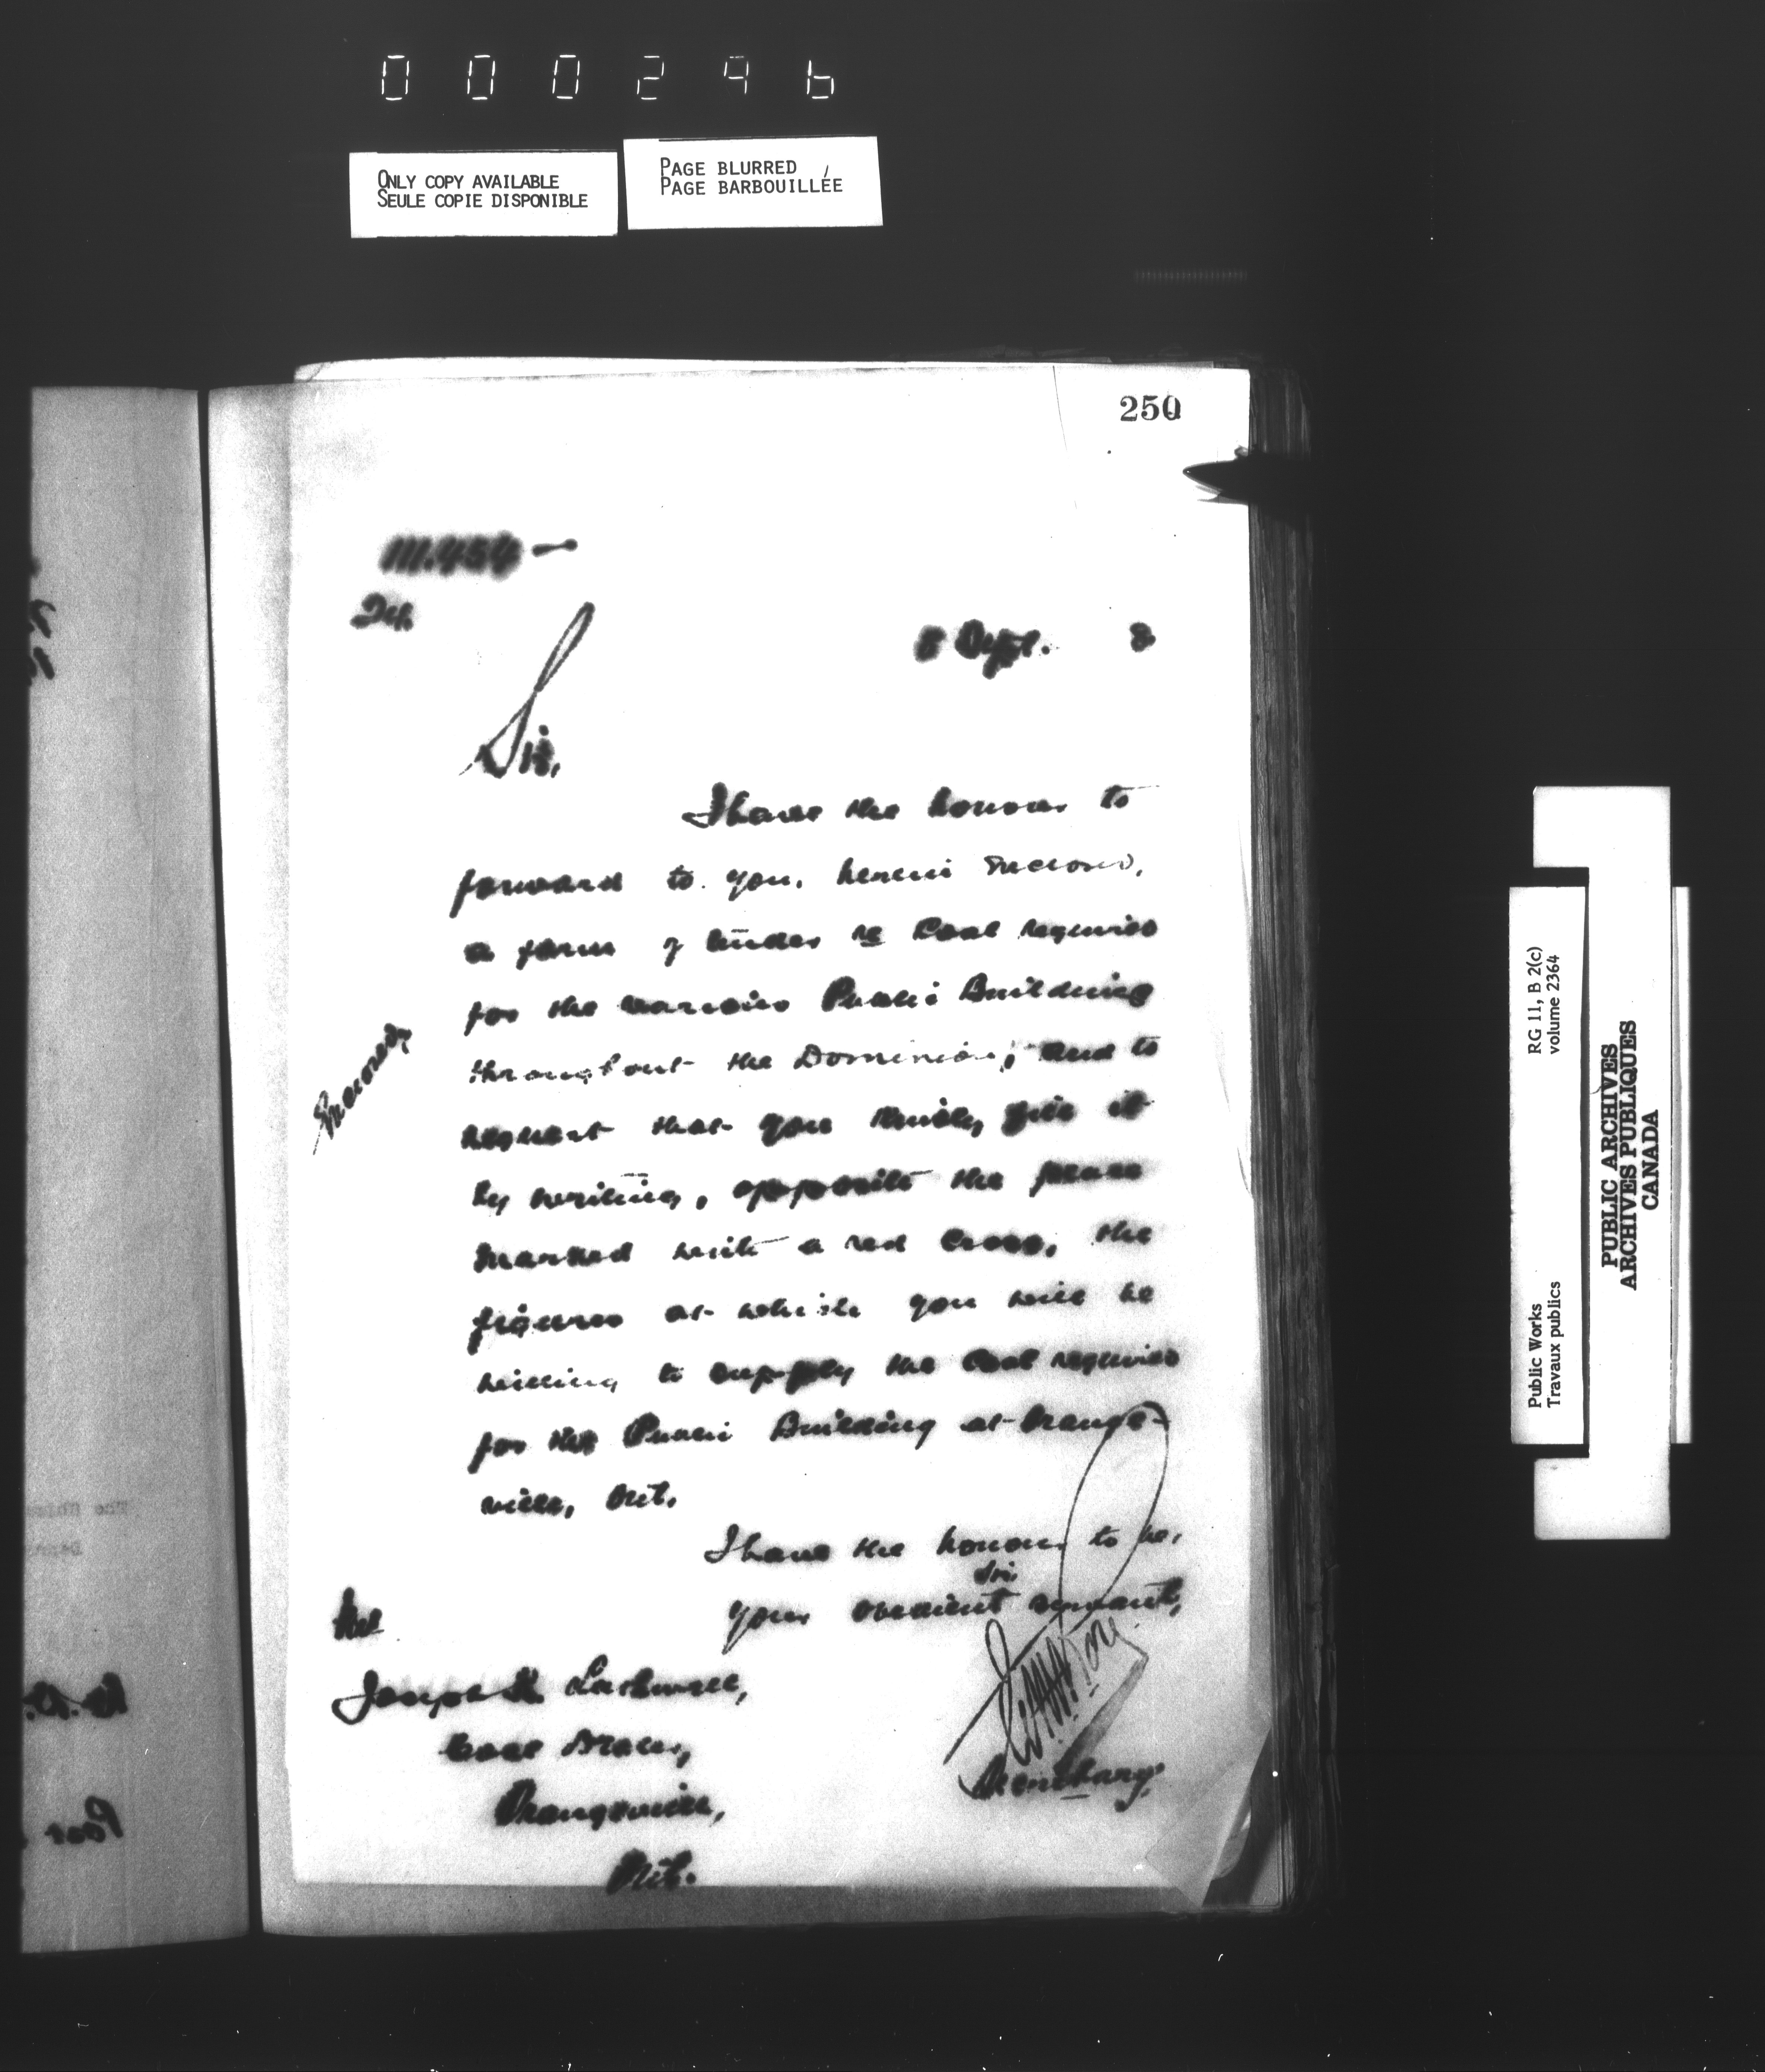 000246
ONLY COPY AVAILABLE
SEULE COPIE DISPONIBLE
PAGE BLURRED
PAGE BARBOUILLÉE
250
8 Sept. 8
Sir,
I have the honour to
forward to you, herein enclosed,
a form of tender re Coal required
for the various Public Building
throughout the Dominion, and to
request that you kindly fill it
by writing, opposite the place
marked with a red cross, the
figures at which you will be
willing to supply the Coal required
for the Public Building at Orange-
ville, Ont.
I have the honour to be,
Sir,
Your obedient servant,
Secretary.
Enclosed
Joseph Lashwell,
Coal Dealer,
Orangeville,
Ont.
RG 11, B 2(c)
volume 2364
Public Works
Travaux publics
PUBLIC ARCHIVES
ARCHIVES PUBLIQUES
CANADA